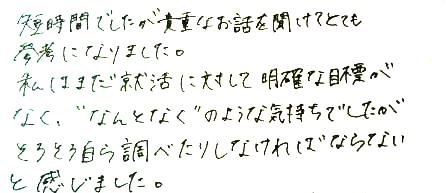 短時間でしたが貴重なお話を聞けてとても
参考になりました。
私はまだ就活に対して明確な目標が
なく、"なんとなく"のような気持ちでしたが
そろそろ自ら調べたりしなければならない
と感じました。